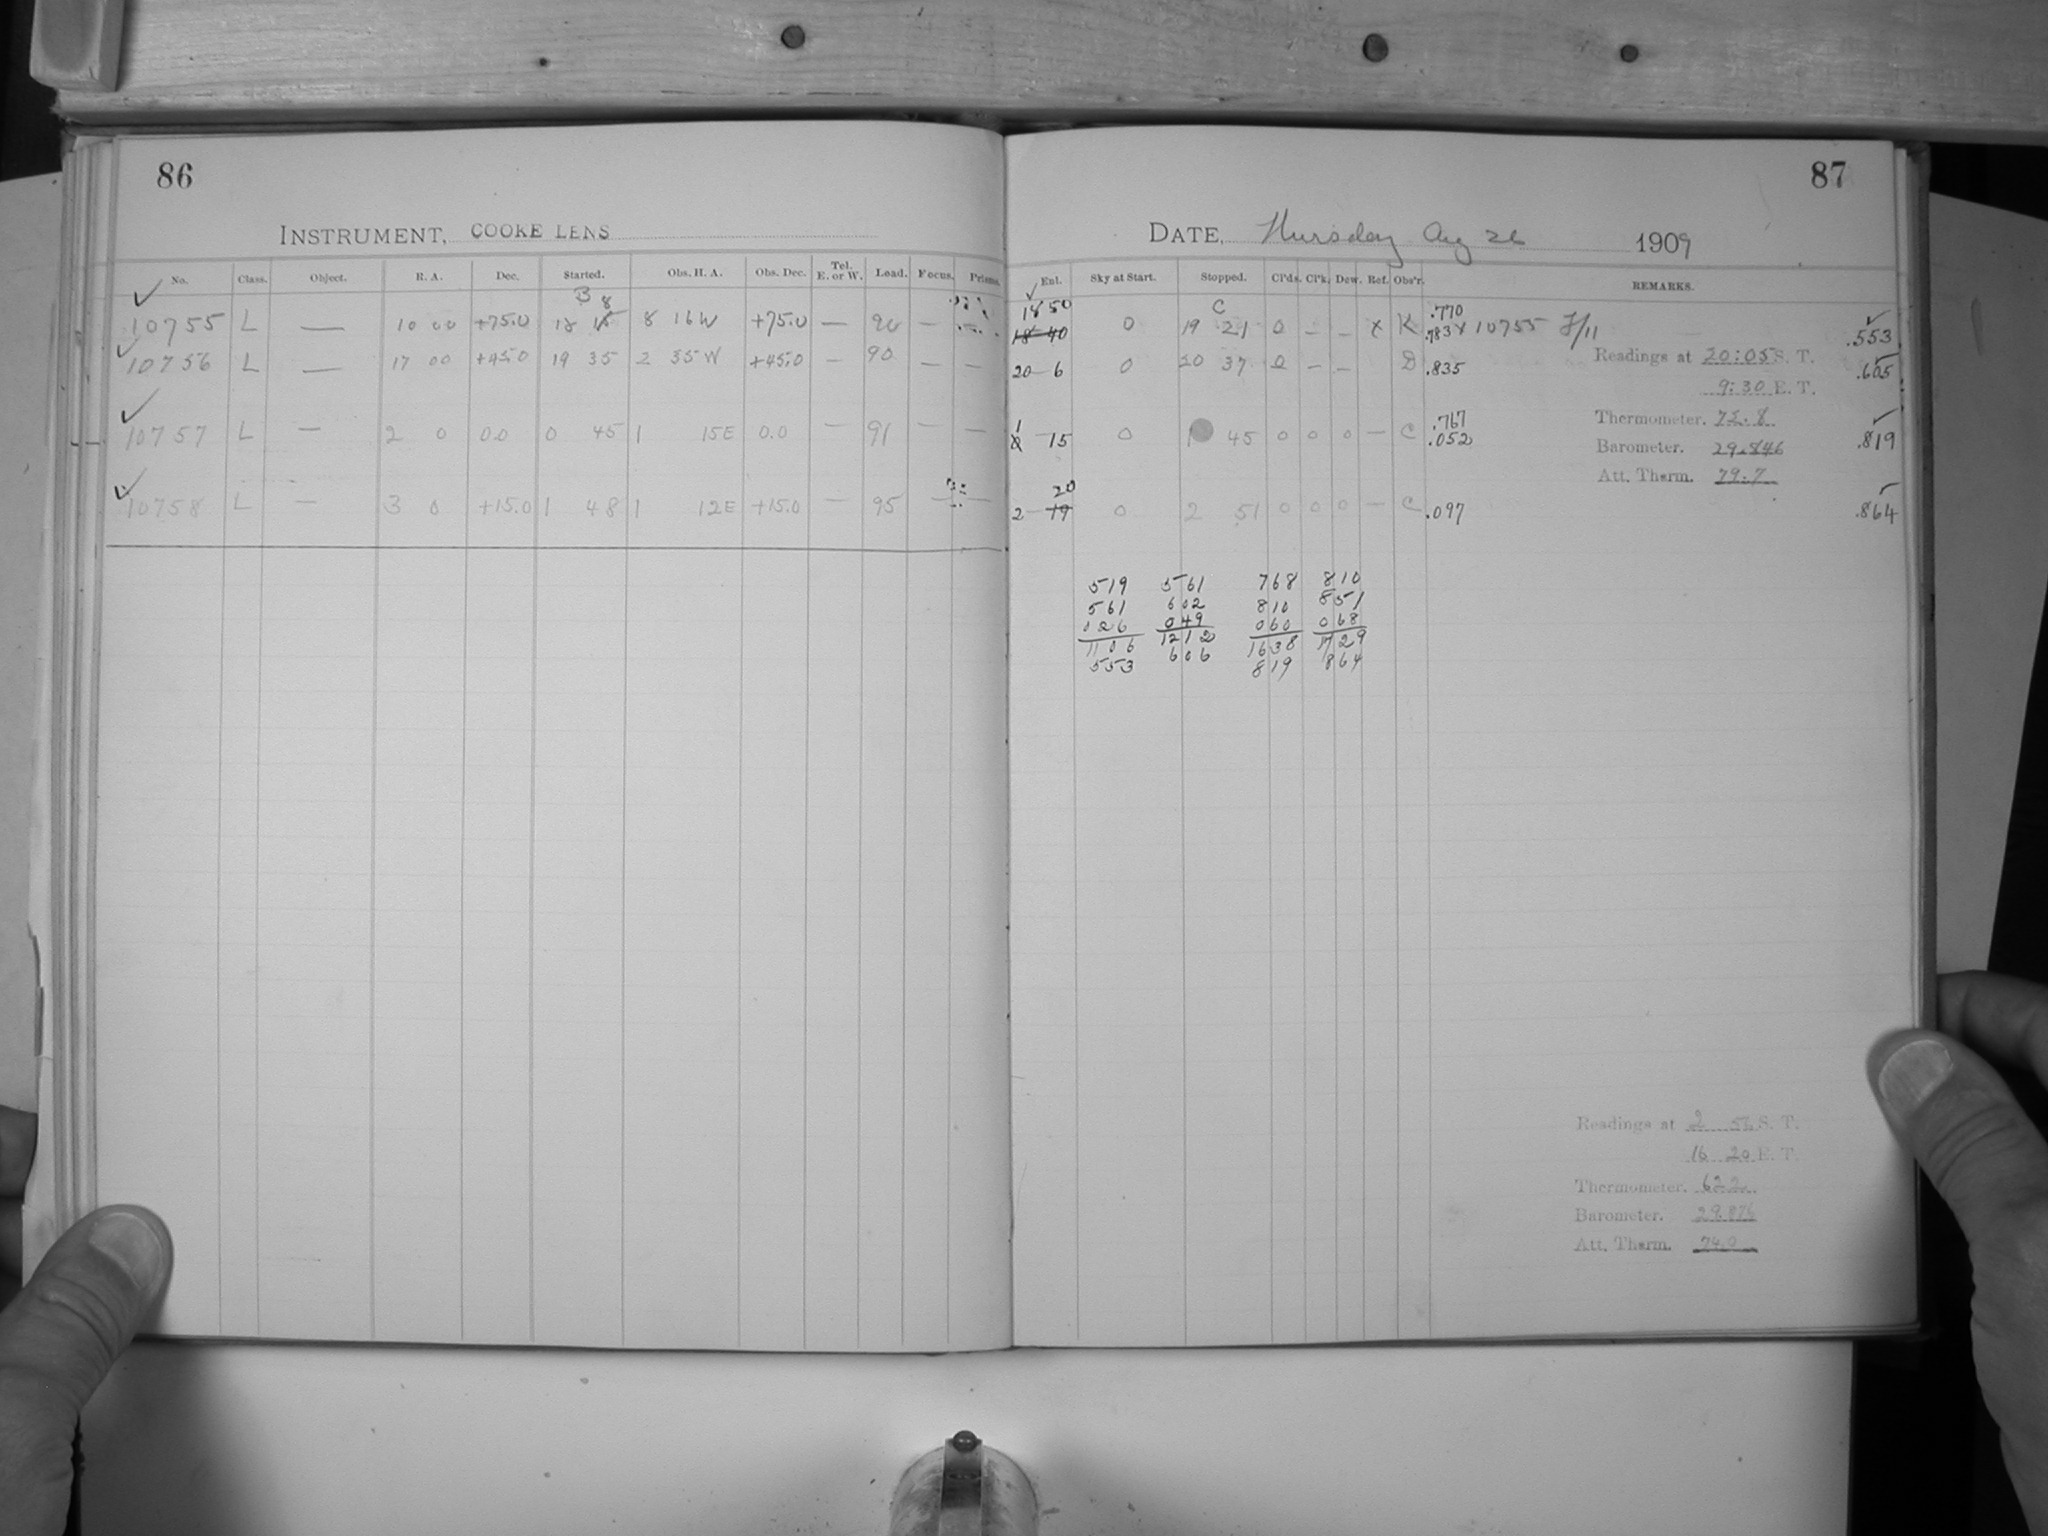 86
INSTRUMENT, COOKE LENS
No. Class. Object. R. A. Dec. Started. Obs. H. A. Obs. Dec. Tel. E. or W. Load. Focus. Prisms.
B 8
10755 L — 10 00 +75.0 18 15 8 16W +75.0 — 90 —
10756 L — 17 00 +45.0 19 35 2 35 W +45.0 90 — —
10757 L — 2 0 0.0 0 45 1 15E 0.0 — 91 — —
10758 L — 3 0 +15.0 1 48 1 12E +15.0 — 95 — —
87
DATE, Thursday Aug 26 1909
Ext. Sky at Start. Stopped. Cl'ds. Cl'k. Dew. Ref. Obs'r. REMARKS.
18 50 C .770
18 40 0 19 21 0 — — X K .783 X 10755 F/11 .553
Readings at 20:05 S. T.
20 6 0 20 37 0 — — D .835 .605
9:30 E. T.
Thermometer. 72.8
1 .767
15 0 1 45 0 0 0 — C .052 .819
Barometer. 29.846
Att. Therm. 79.7
20
2 19 0 2 51 0 0 0 — C .097 .864
519 561 768 810
561 602 810 851
026 049 060 068
1106 1212 1638 1729
553 606 819 864
Readings at 2 56 S. T.
16 20 E. T.
Thermometer. 62.2
Barometer. 29.876
Att. Therm. 74.0